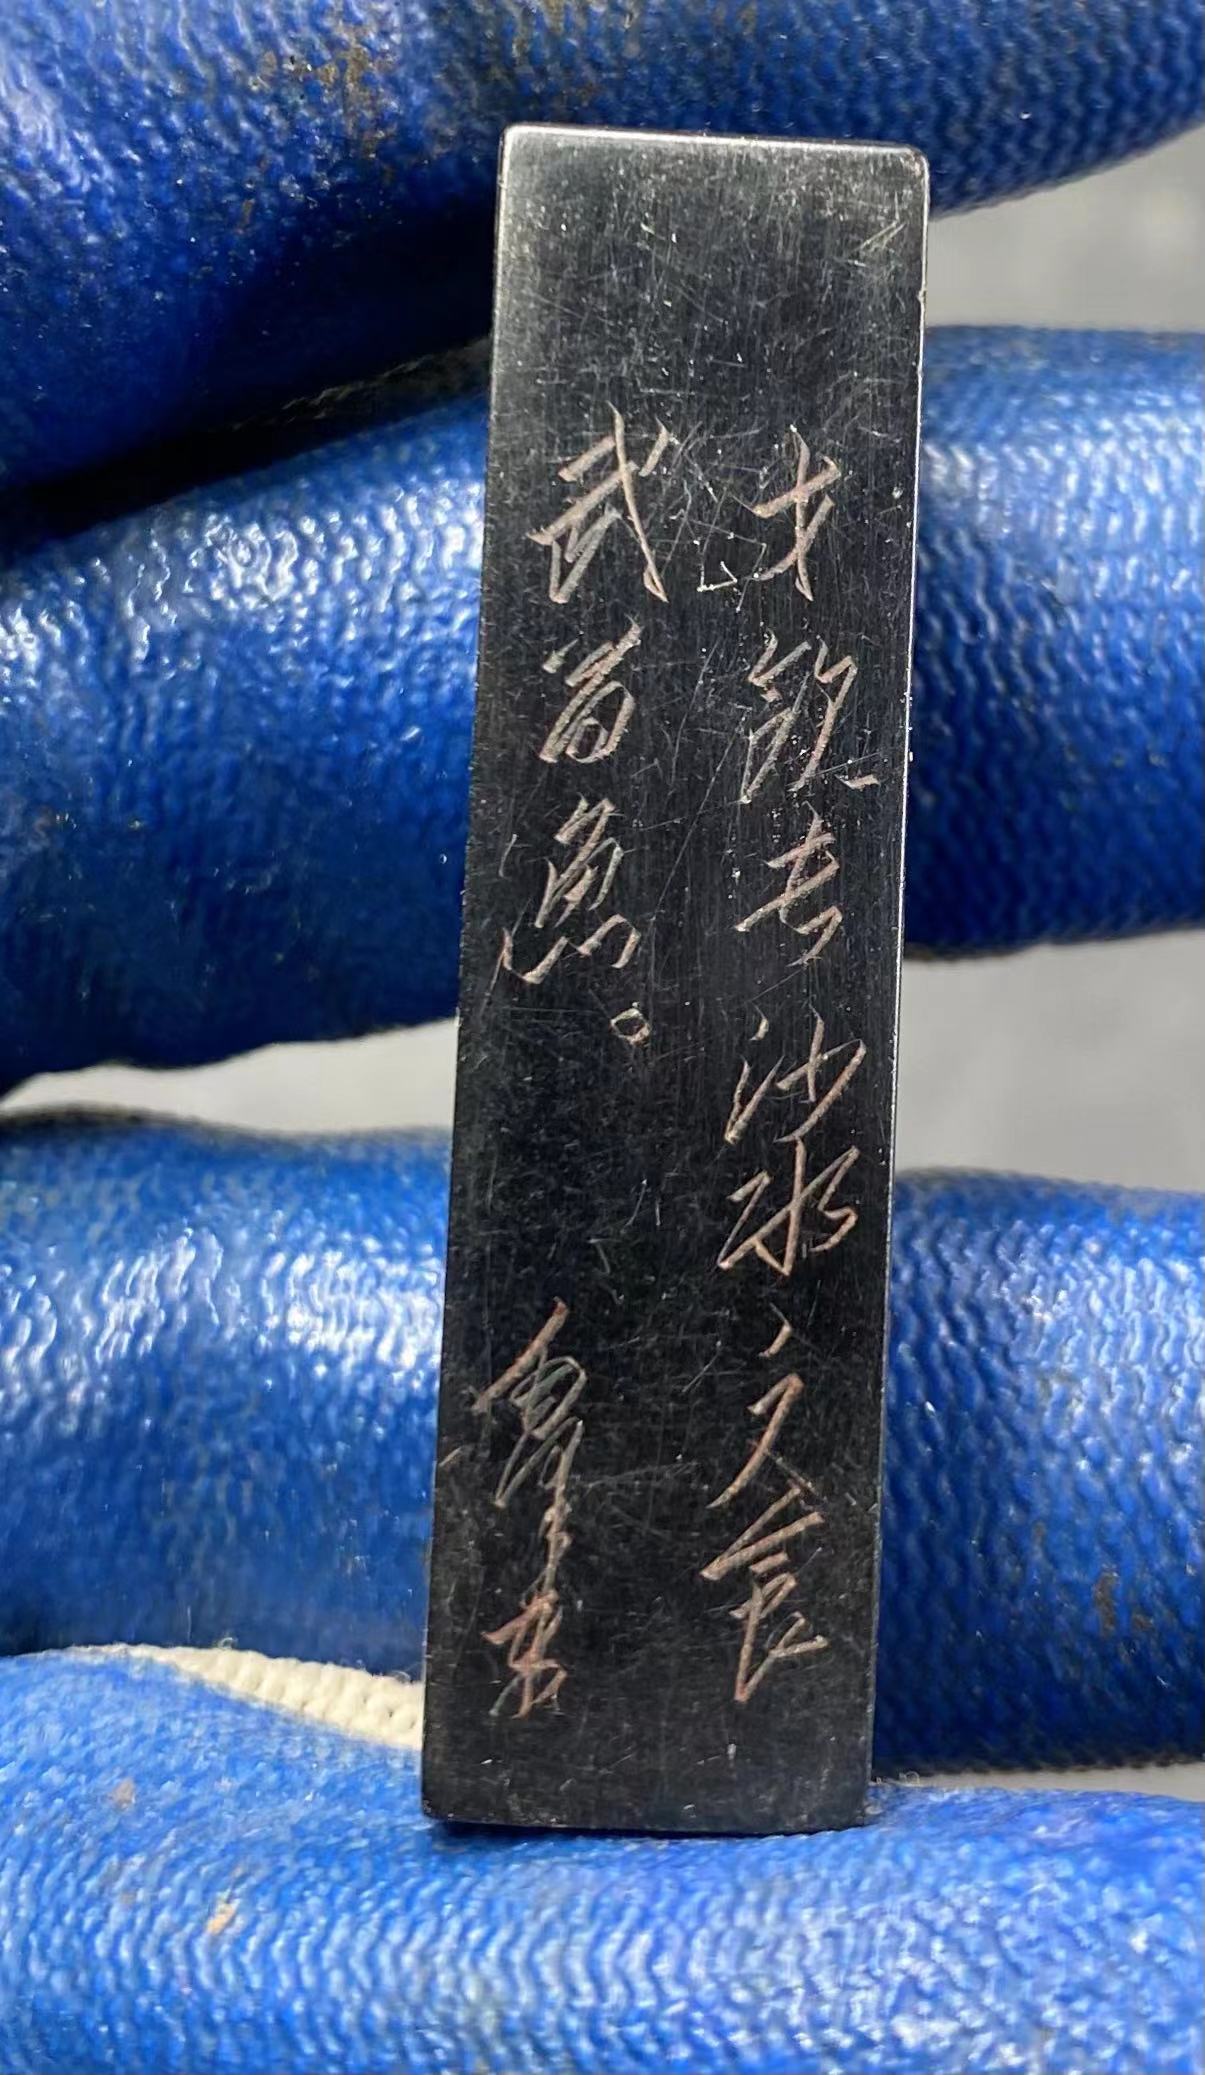 才饮长沙水,又食
武昌鱼。 泽东